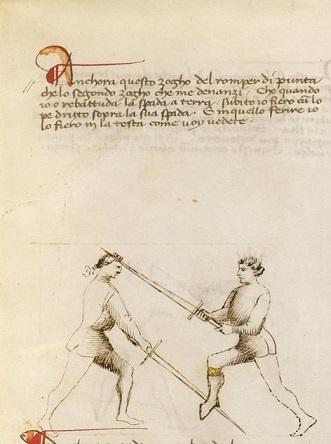 Anchora questo zogho del romper di punta
che lo segondo zogho che me denanzi. Che quando
io o rebattuda la spada a terra subito io fiero cu lo
pe dritto sopra la sua spada. E in quello ferire io
lo fiero in la testa come voy vedete.